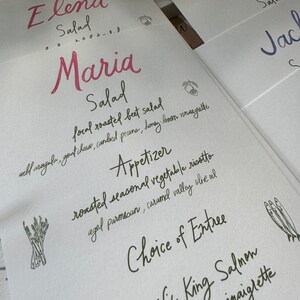 Elena
Salad
Maria
Salad
local roasted beet salad
wild arugula, goat cheese, candied pecans, honey lemon vinaigrette
Appetizer
roasted seasonal vegetable risotto
aged parmesan, carmel valley olive oil
Choice of Entree
King Salmon
vinaigrette
Jac
Salad